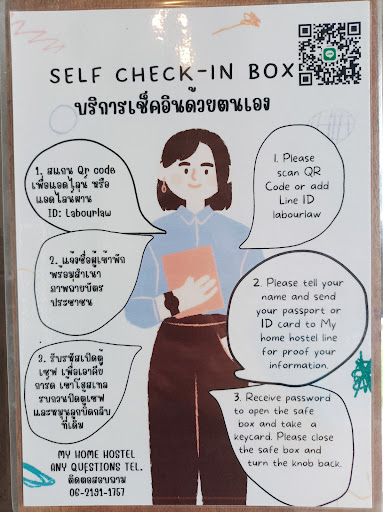 SELF CHECK-IN BOX
บริการเช็คอินด้วยตนเอง
1. สแกน Qr code
เพื่อแอดไลน์ หรือ
แอดไลน์ผ่าน
ID: Labourlaw
1. Please
scan QR
Code or add
Line ID
labourlaw
2. แจ้งชื่อผู้เข้าพัก
พร้อมสำเนา
ภาพถ่ายบัตร
ประชาชน
2. Please tell your
name and send
your passport or
ID card to My
home hostel
line for proof your
information.
3. รับรหัสเปิดตู้
เซฟ เพื่อเอาคีย์
การ์ด เข้าโฮสเทล
รบกวนปิดตู้เซฟ
และหมุนลูกบิดกลับ
ที่เดิม
3. Receive password
to open the safe
box and take a
keycard. Please close
the safe box and
turn the knob back.
MY HOME HOSTEL
ANY QUESTIONS TEL.
ติดต่อสอบถาม
06-2191-1757